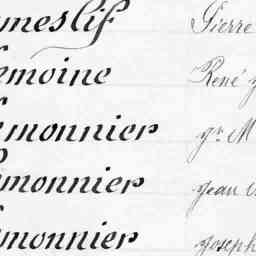 meslif Pierre
emoine René
monnier gr. M
monnier Jean
monnier Joseph